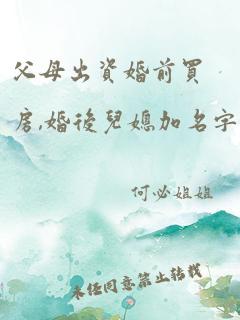 父母出資婚前買
房,婚後兒媳加名字
何必姐姐
未經同意禁止轉載